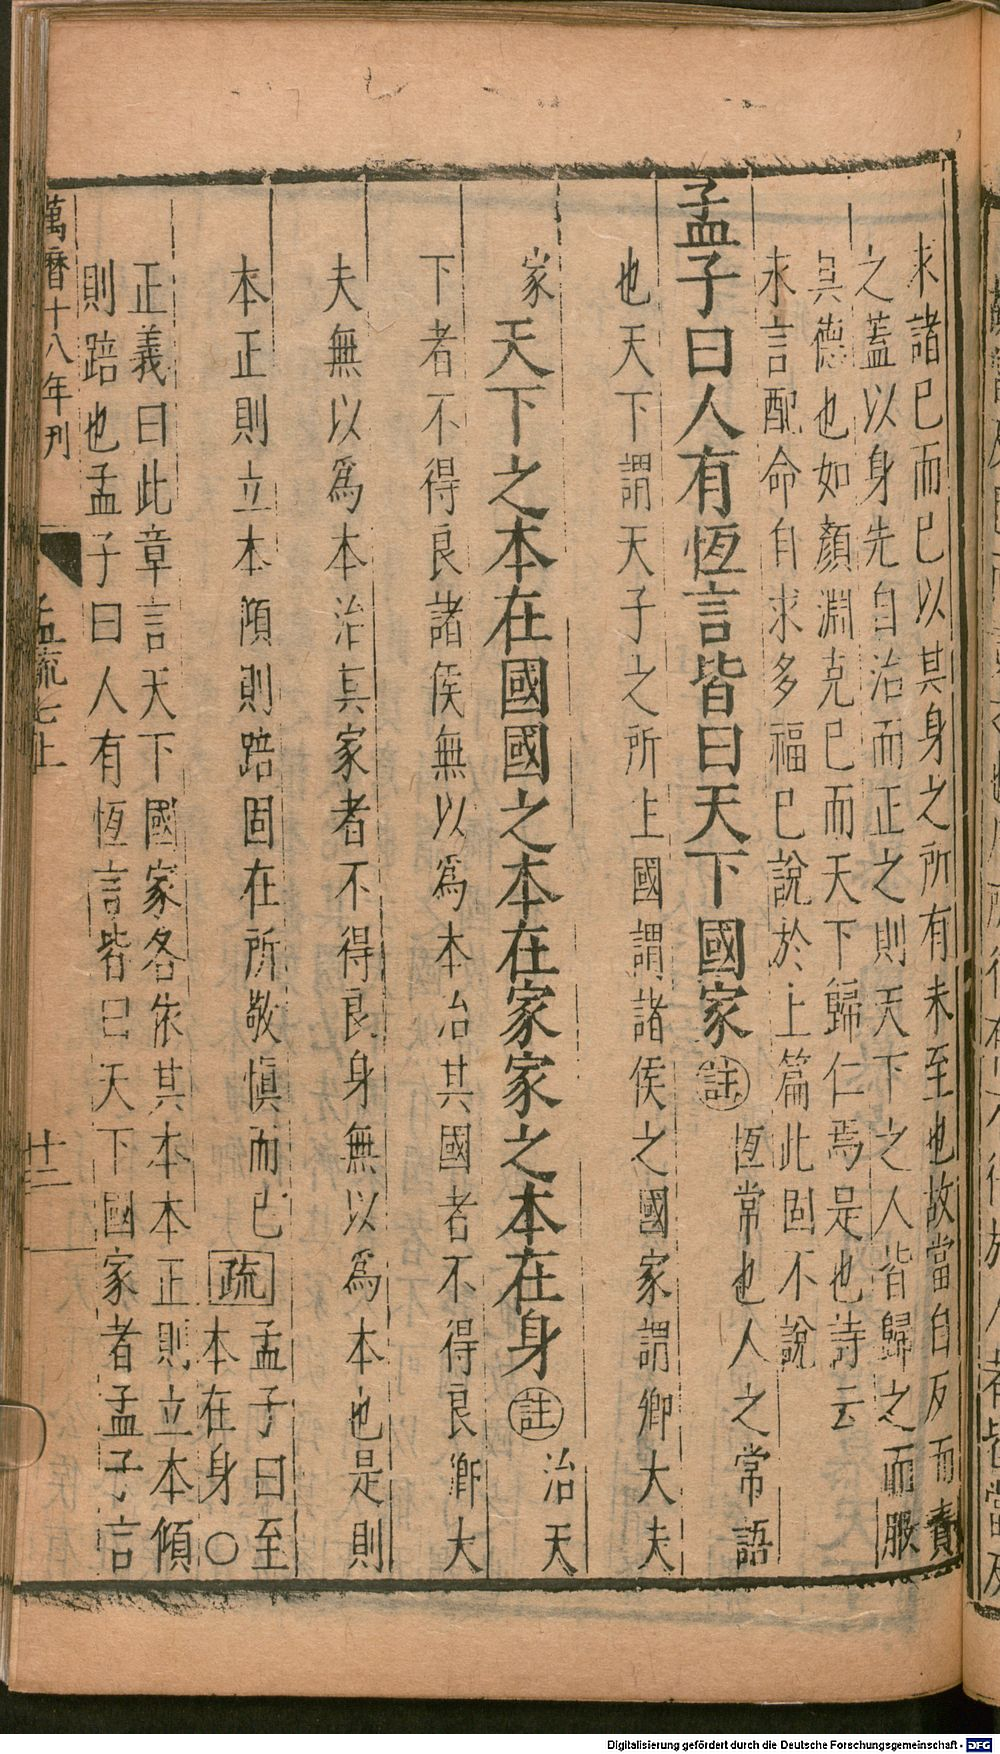 求諸已而已以其身之所有未至也故當自反而責
之蓋以身先自治而正之則天下之人皆歸之而服
其德也如顏淵克已而天下歸仁焉是也詩云
永言配命自求多福已說於上篇此固不說
孟子曰人有恆言皆曰天下國家註恆常也人之常語
也天下謂天子之所主國謂諸侯之國家謂卿大夫
家天下之本在國國之本在家家之本在身註治天
下者不得良諸侯無以爲本治其國者不得良卿大
夫無以爲本治其家者不得良身無以爲本也是則
本正則立本傾則踣固在所敬慎而已疏孟子曰至
本在身○
正義曰此章言天下國家各依其本本正則立本傾
則踣也孟子曰人有恆言皆曰天下國家者孟子言
萬曆十八年刊
孟疏七上
廿二
Digitalisierung gefördert durch die Deutsche Forschungsgemeinschaft - DFG